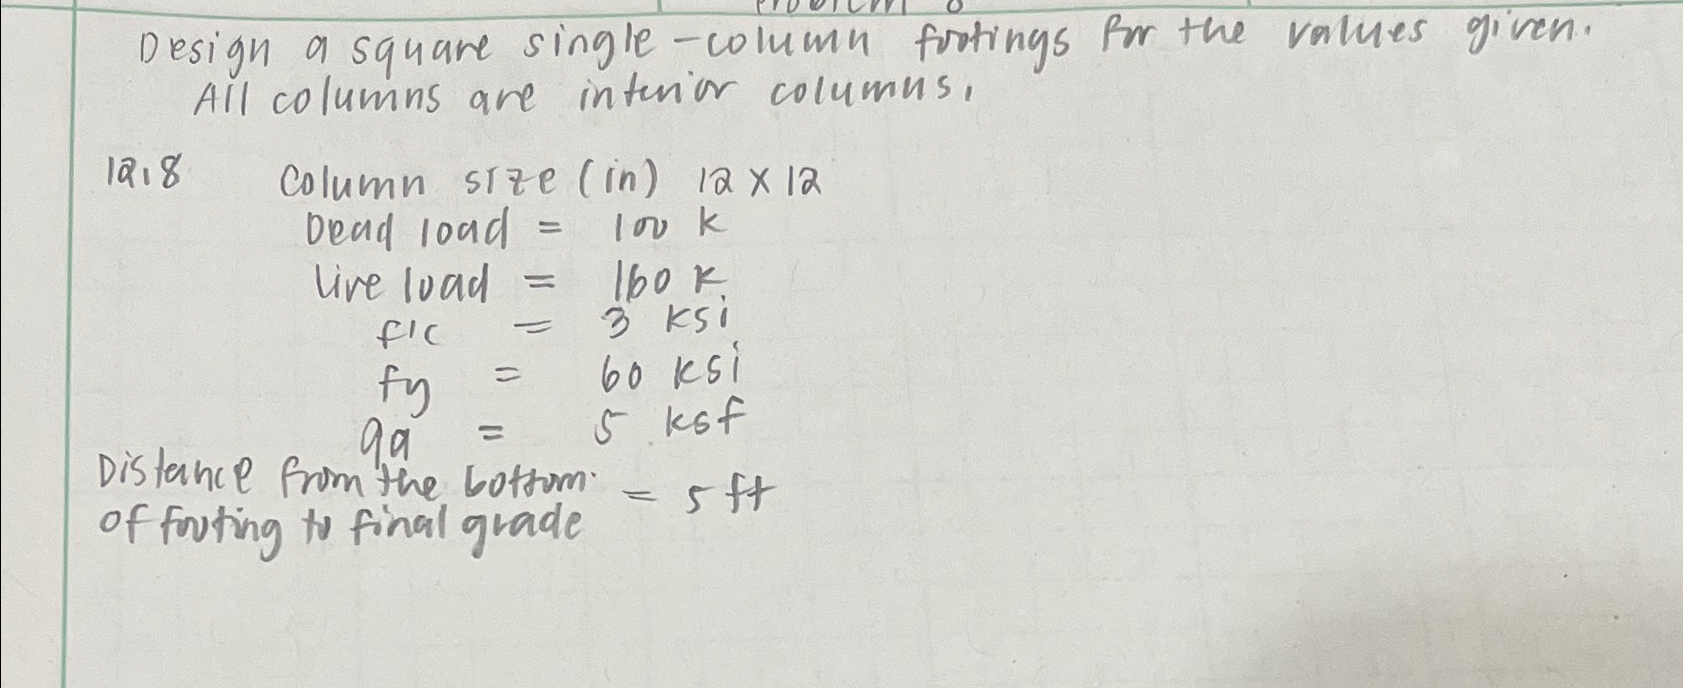 Problem 8
Design a square single-column footings for the values given.
All columns are interior columns.
12.8 Column size (in) 12 x 12
Dead load = 100 k
Live load = 160 k
f'c = 3 ksi
fy = 60 ksi
qa = 5 ksf
Distance from the bottom
of footing to final grade = 5 ft